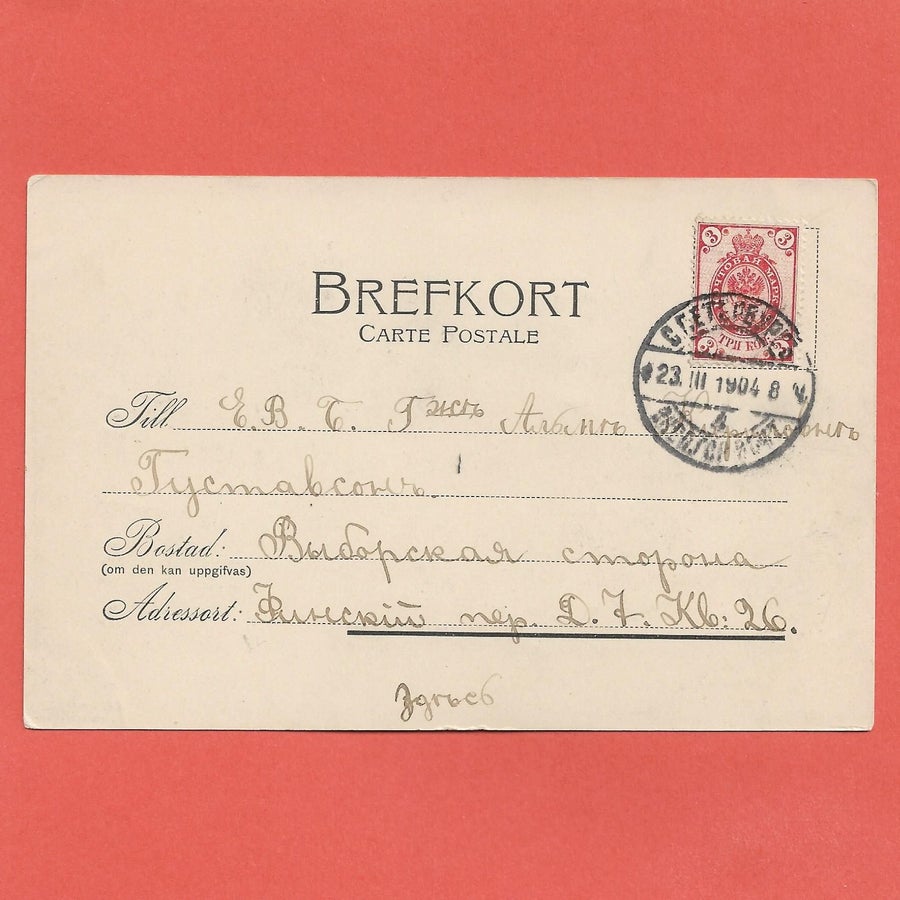 BREFKORT
CARTE POSTALE
3 3
ПОЧТОВАЯ МАРКА
3 ТРИ КОП. 3
С.ПЕТЕРБУРГЪ
23. III 1904 8
Till Е. В. Б. Гжѣ
Густавсонъ.
Bostad: Выборская сторона
(om den kan uppgifvas)
Adressort: Финскій пер. Д. 7. Кв: 26.
Здѣсь